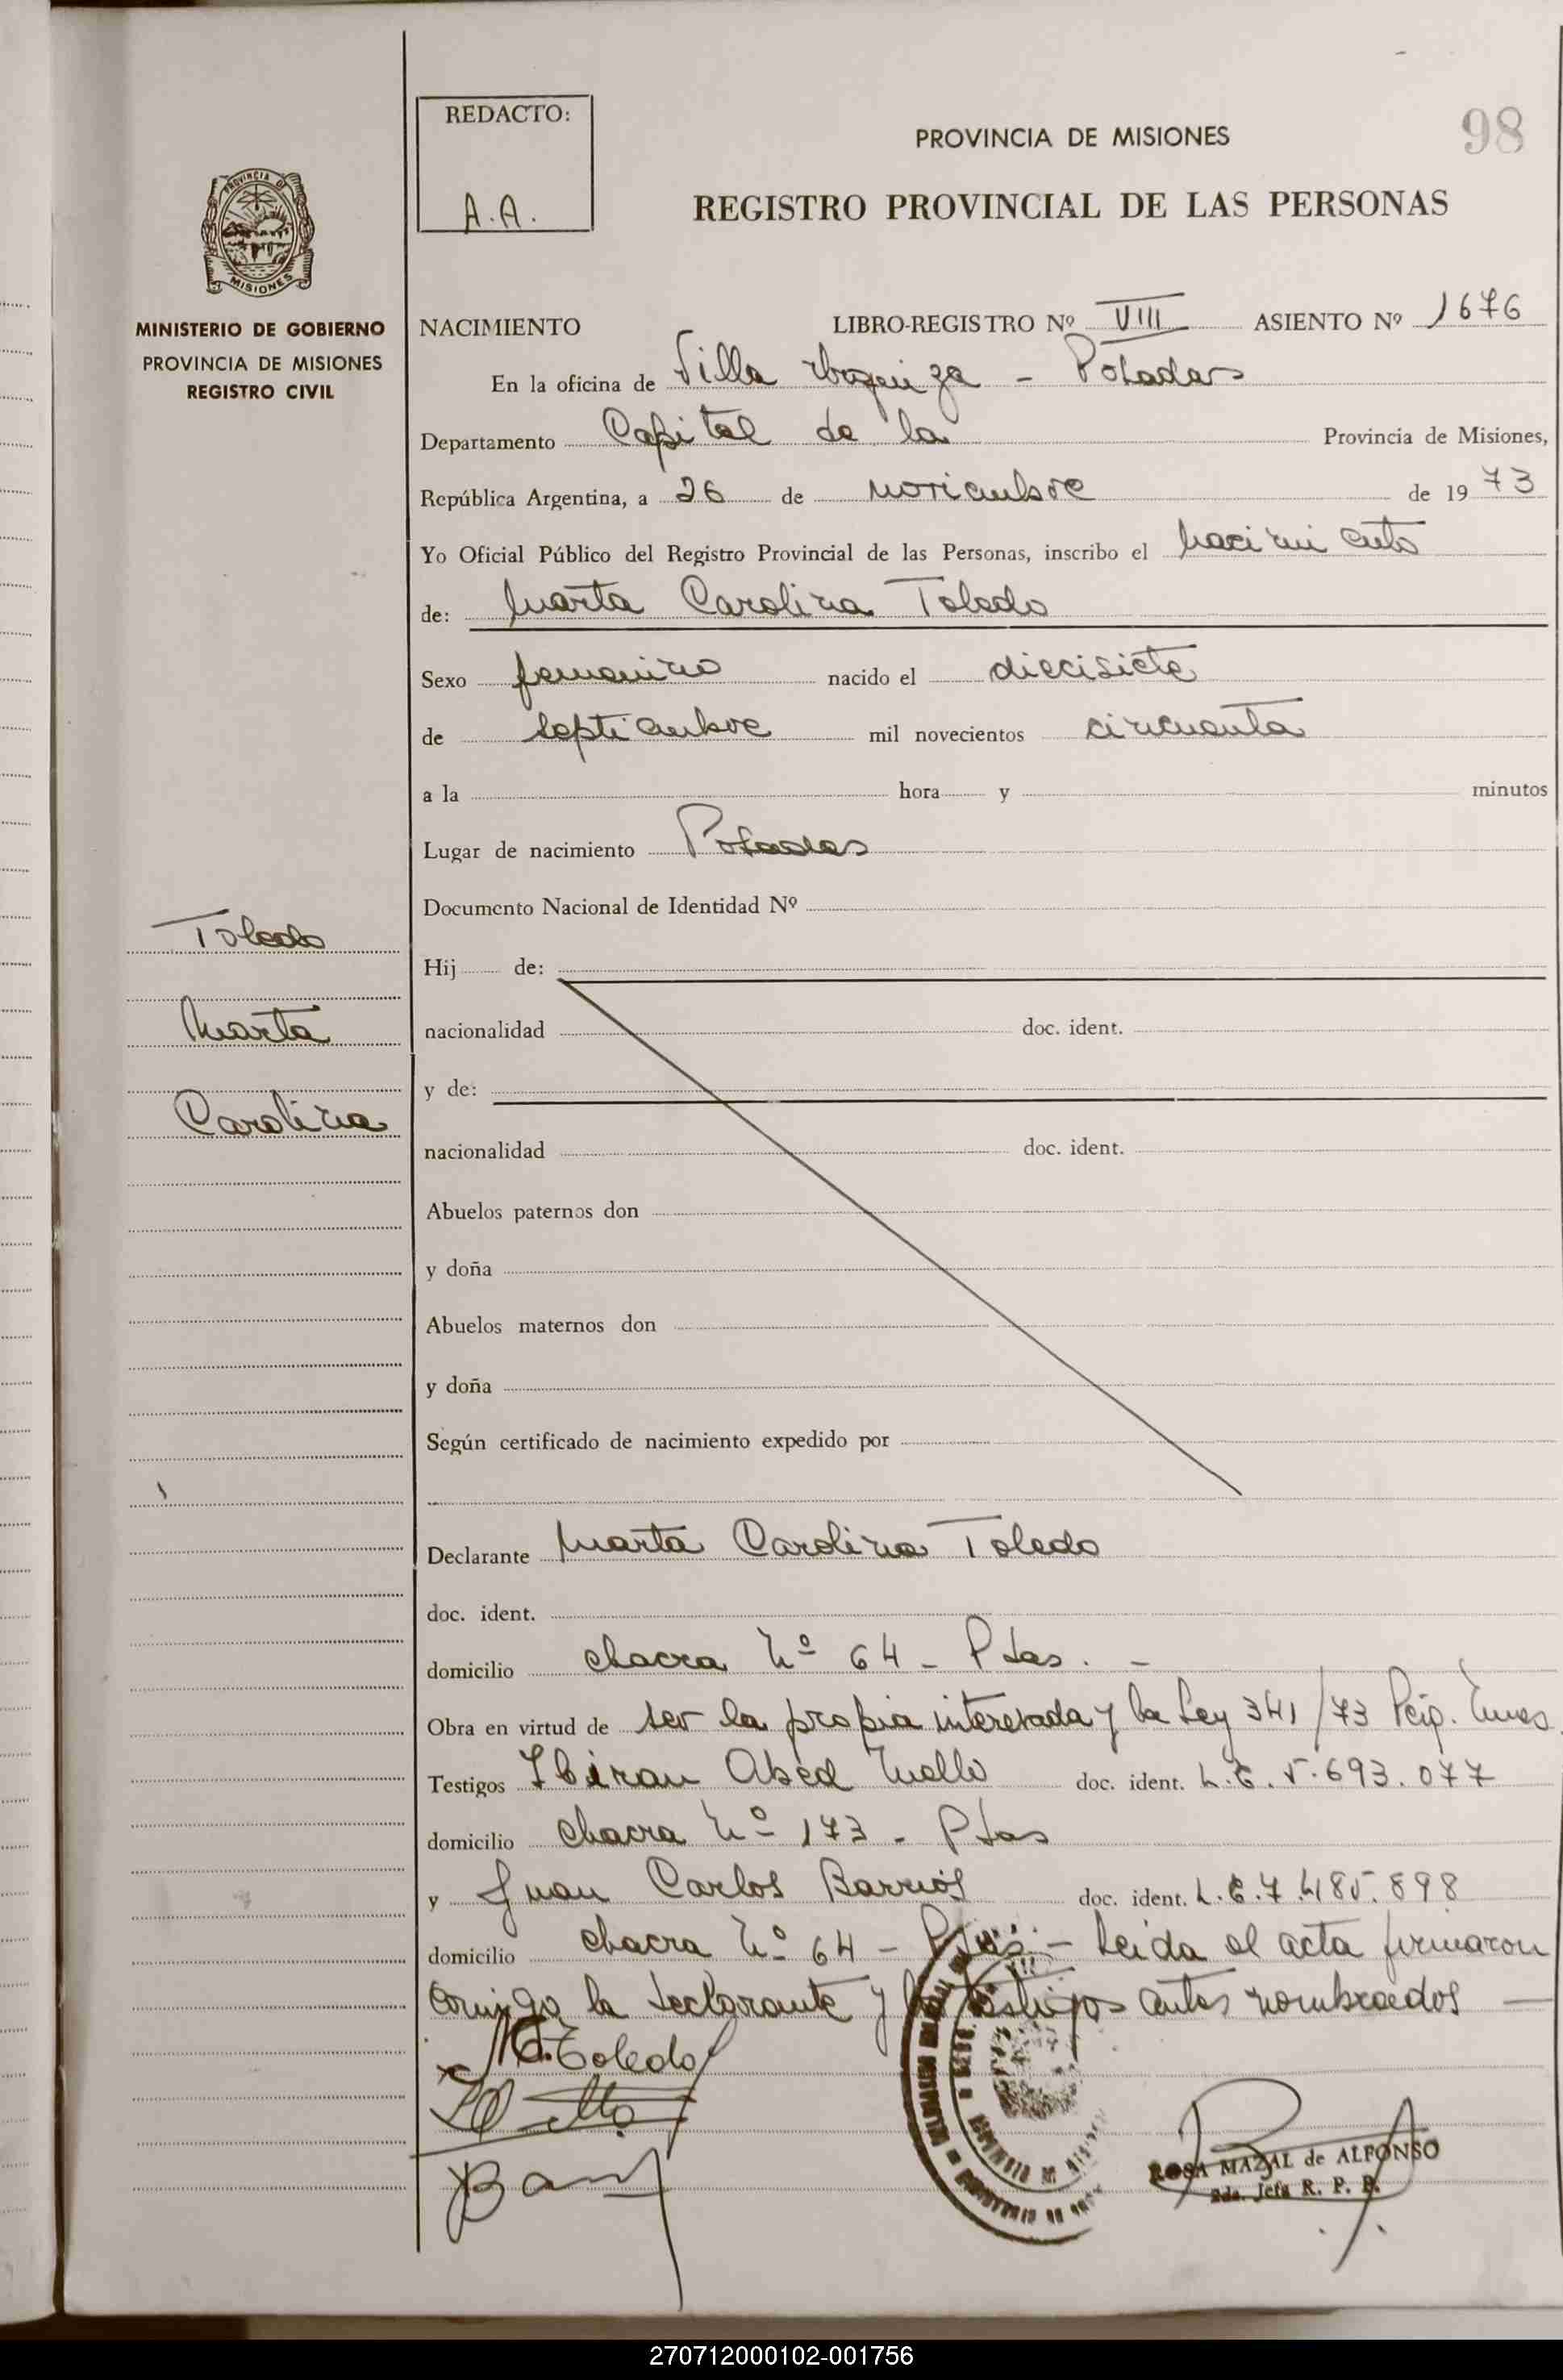 REDACTO:
A.A.
PROVINCIA DE MISIONES
98
REGISTRO PROVINCIAL DE LAS PERSONAS
PROVINCIA DE
MISIONES
MINISTERIO DE GOBIERNO
PROVINCIA DE MISIONES
REGISTRO CIVIL
NACIMIENTO LIBRO-REGISTRO Nº VIII ASIENTO Nº 1676
En la oficina de Villa - Posadas
Departamento Capital de la Provincia de Misiones,
República Argentina, a 26 de noviembre de 1973
Yo Oficial Público del Registro Provincial de las Personas, inscribo el nacimiento
de: Marta Carolina Toledo
Sexo femenino nacido el diecisiete
de septiembre mil novecientos cincuenta
a la hora y minutos
Lugar de nacimiento Posadas
Documento Nacional de Identidad Nº
Toledo
Marta
Carolina
Hij de:
nacionalidad doc. ident.
y de:
nacionalidad doc. ident.
Abuelos paternos don
y doña
Abuelos maternos don
y doña
Según certificado de nacimiento expedido por
Declarante Marta Carolina Toledo
doc. ident.
domicilio chacra Nº 64 - Pdas. -
Obra en virtud de ser la propia interesada y la Ley 341/73
Testigos Ibiran Abed Mello doc. ident. L.E. 5.693.077
domicilio chacra Nº 173 - Pdas
y Juan Carlos Barrios doc. ident. L.E. 7.485.898
domicilio chacra Nº 64 - Pdas. - Leida el acta firmaron
conmigo la declarante y los testigos antes nombrados
M.C. Toledo
ROSA MAZAL de ALFONSO
2da. Jefa R. P. P.
270712000102-001756